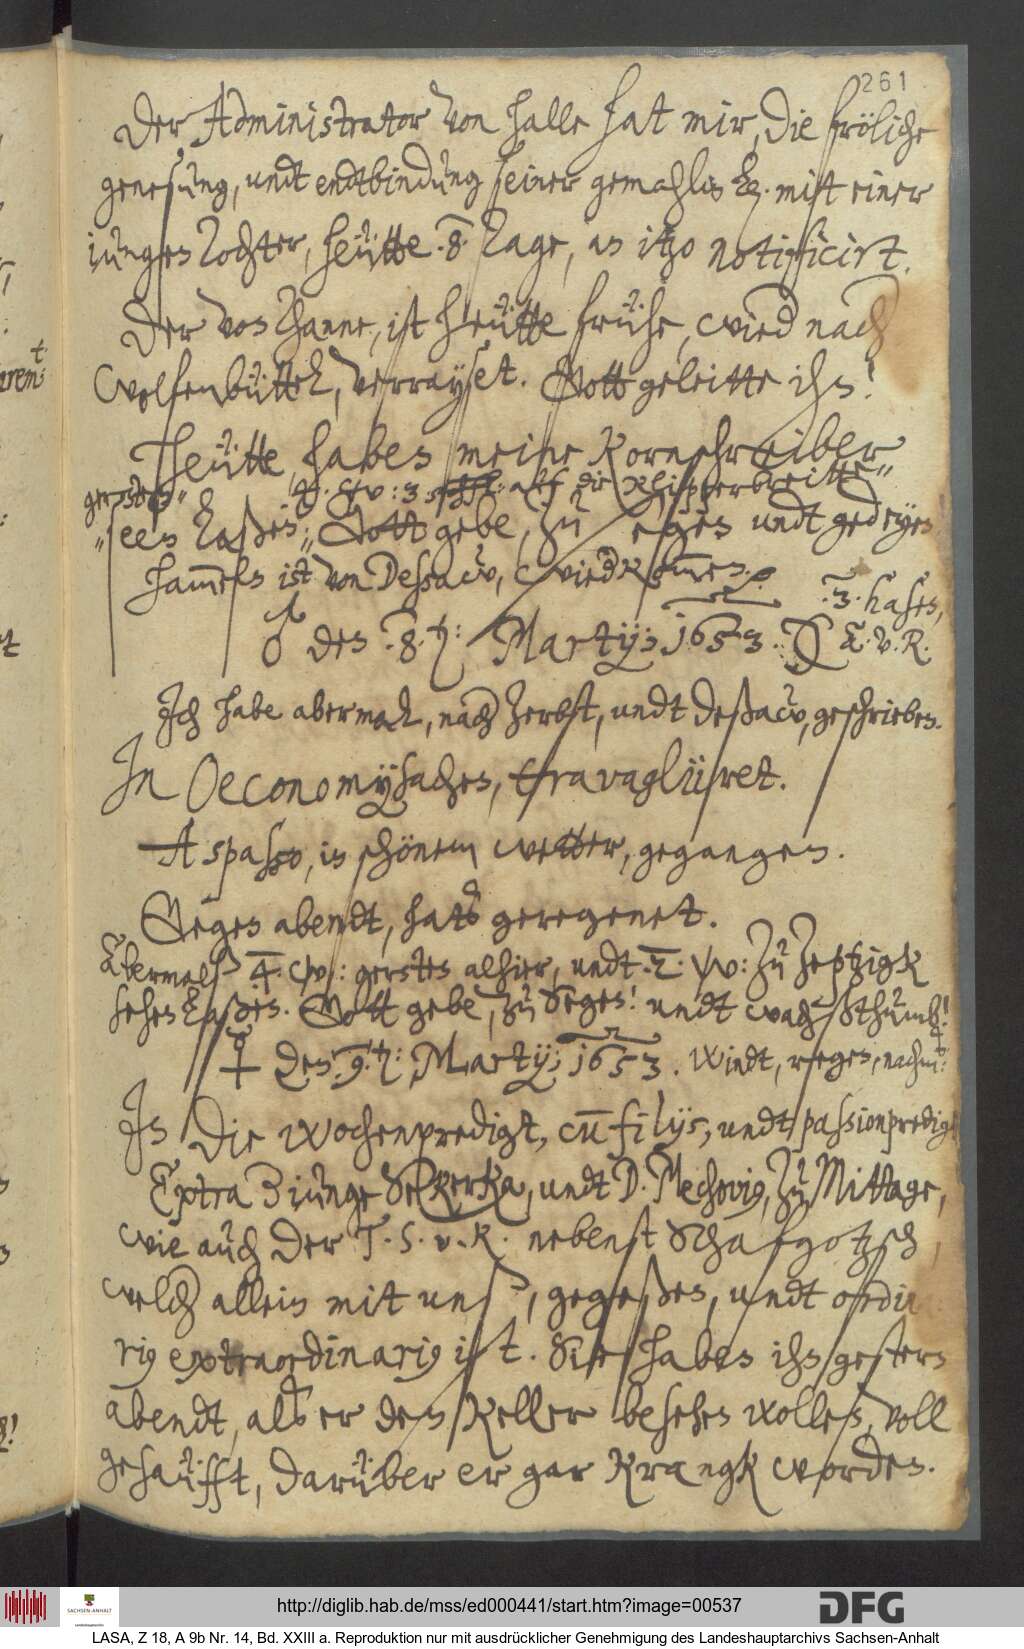 261
Der Administrator von Halle hat mir, die fröliche
genesung, undt endtbindung seiner gemahlin L. mitt einer
iungen Tochter, heütte .8. Tage, an itzo notificirt.
Der von Thann, ist heütte frühe, wied nach
Wolfenbüttel, verrayset. Gott geleitte ihn!
Heütte, haben meine Kornschreiber
gersten 4. w: 3 auf die Klipperbreitte
seen laßen; Gott gebe, zu segen undt gedeyen.
Hammeln ist von Dessaw, wied kommen.
.3. hasen,
♂ den .8. t: Martij; 1653. A. v. R.
Ich habe abermal, nach Zerbst, undt Deßaw, geschrieben.
In Oeconomysachen, travagliiret.
A spasso, in schönem wetter, gegangen.
Gegen abendt, hats geregenet.
Abermalß .4. w: gersten alhier, undt .2. w: zu Zeptzigk
sehen laßen. Gott gebe, zu Segen! undt wachßthumb!
☿ den .9. t: Martij; 1653. Windt, regen, nachm:
In die wochenpredigt, cum filijs, undt passionpredigt
Extra 3 iunge Sekerka, undt D. Mechovius, zu Mittage,
wie auch der T. S. v. R. nebenst Schafgotzsch,
welch allein mit unß, gegeßen, undt ordina
rius extraordinarius ist. Sie haben ihn gestern
abendt, als er den Keller besehen wollen, voll
gesaüfft, darüber er gar krangk worden.
http://diglib.hab.de/mss/ed000441/start.htm?image=00537
SACHSEN-ANHALT
DFG
LASA, Z 18, A 9b Nr. 14, Bd. XXIII a. Reproduktion nur mit ausdrücklicher Genehmigung des Landeshauptarchivs Sachsen-Anhalt